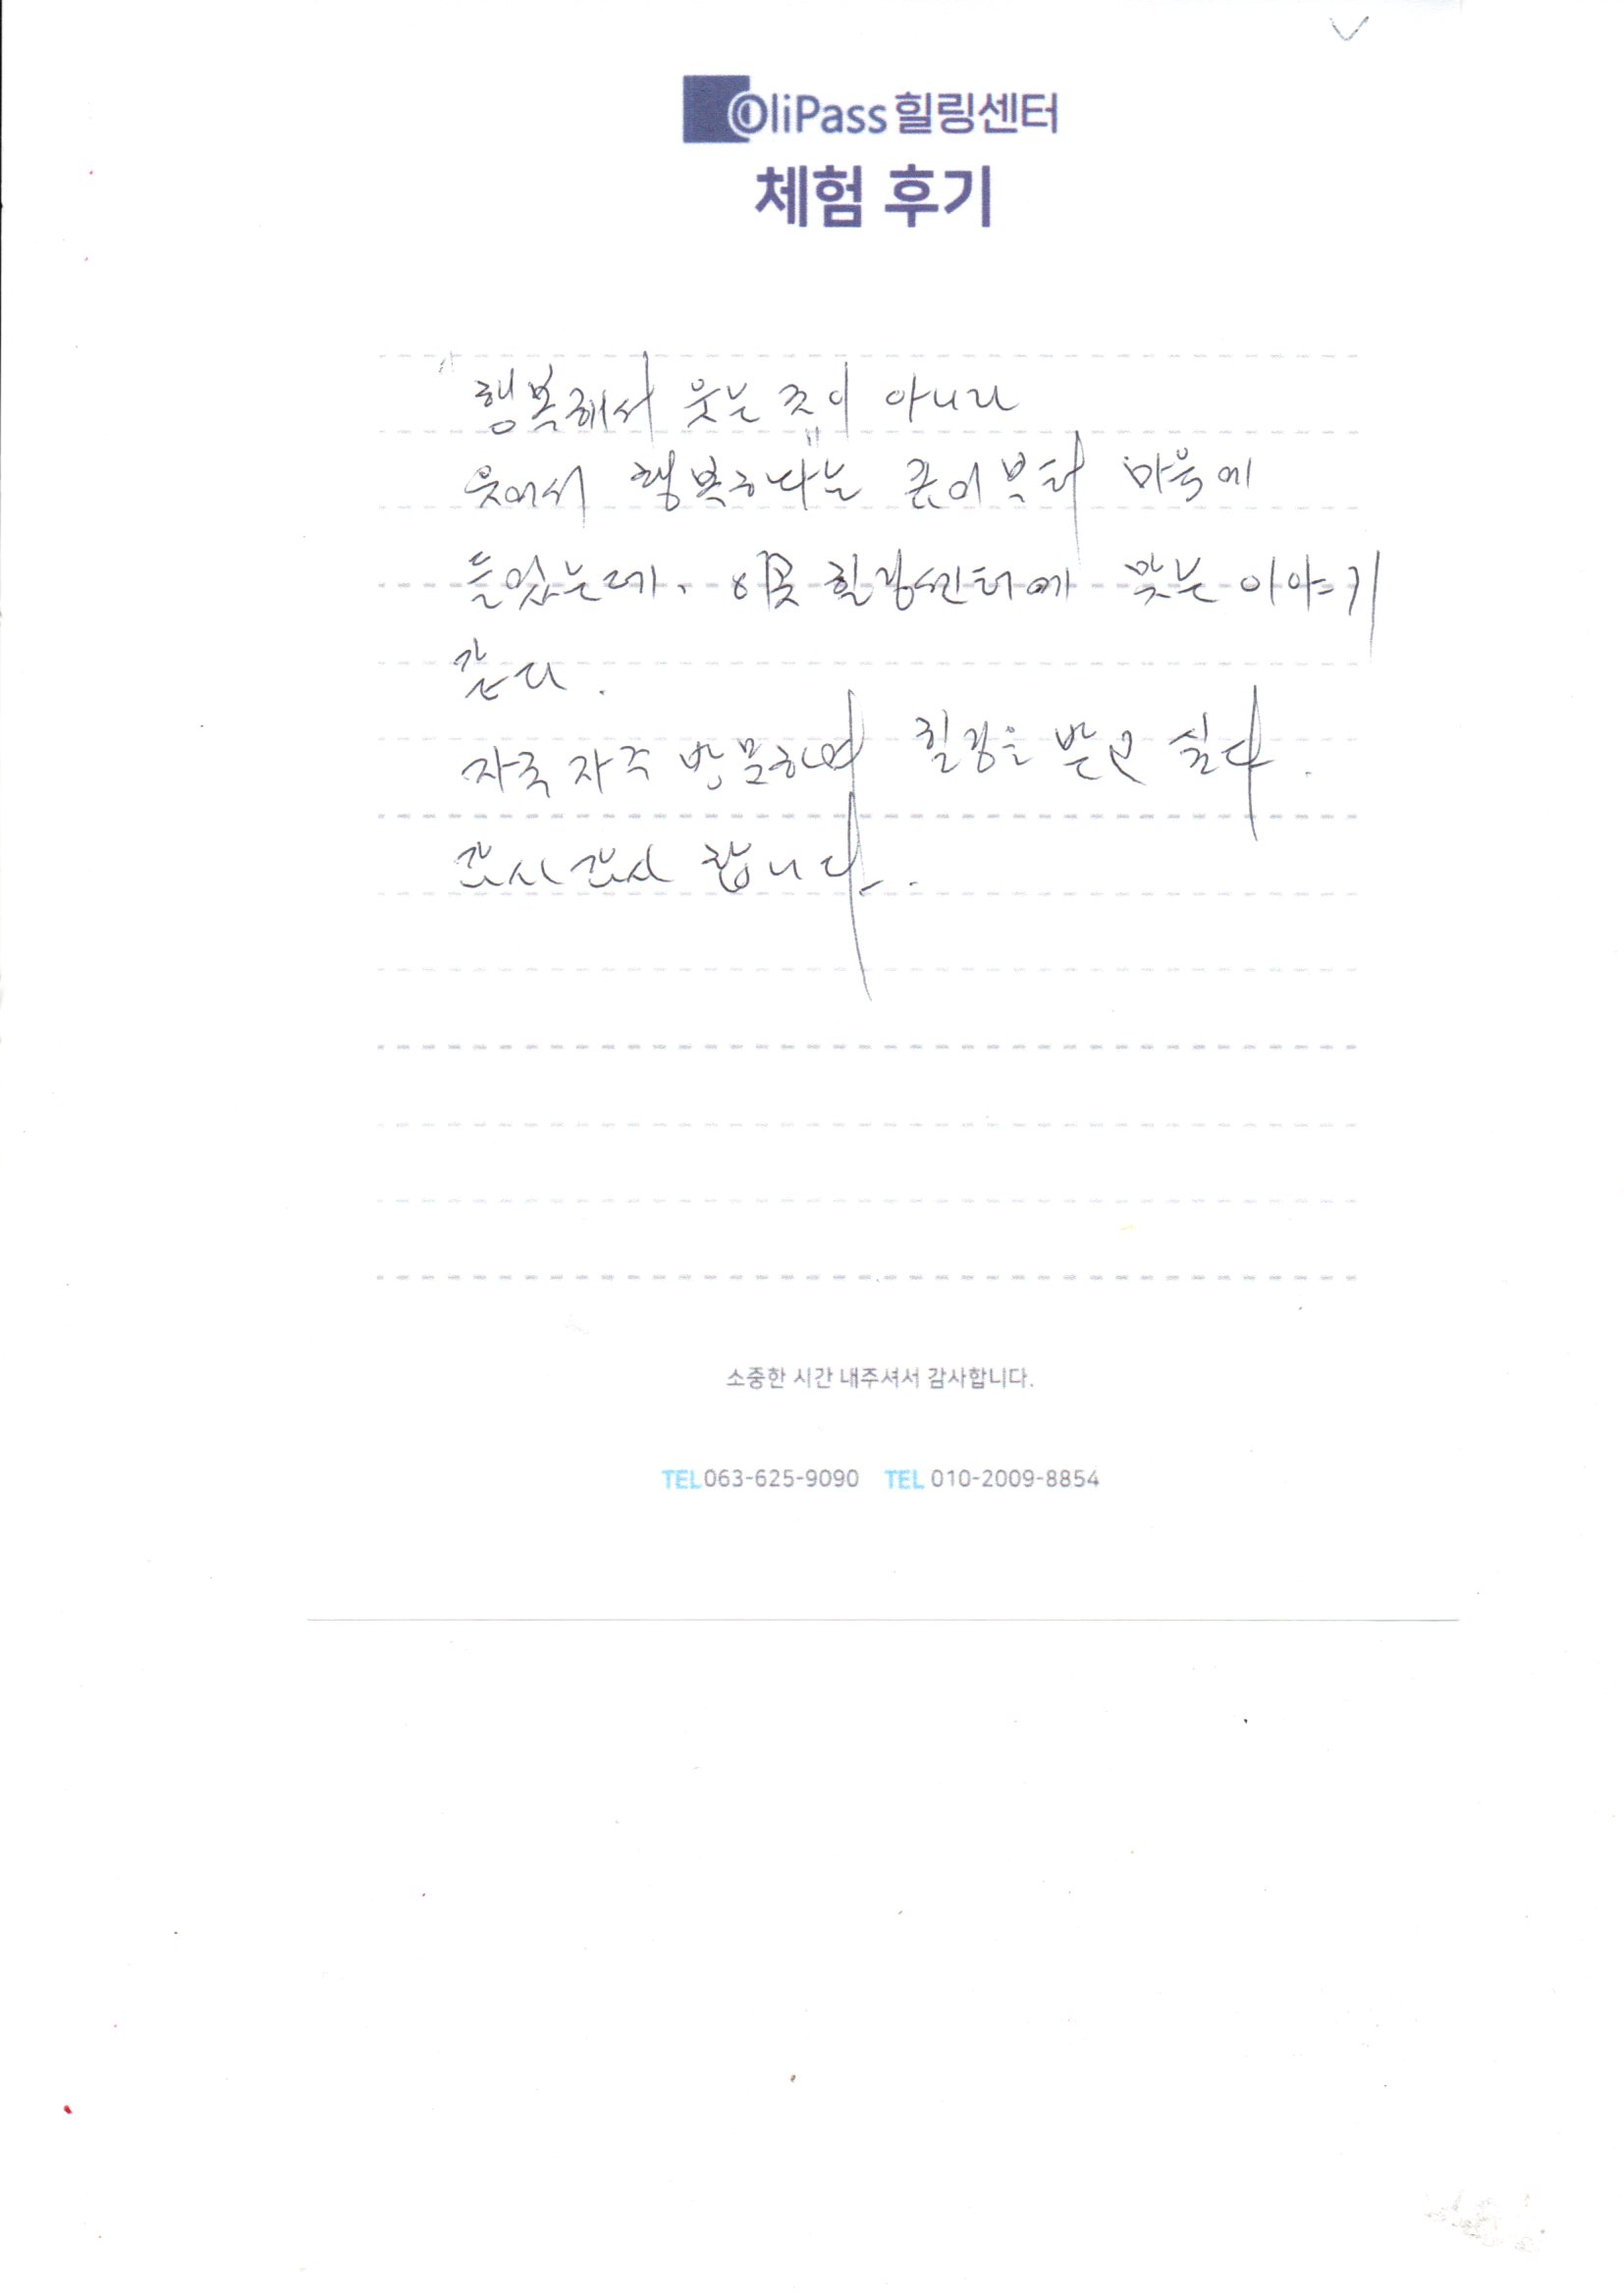 OliPass 힐링센터
체험 후기
" 행복해서 웃는 것이 아니라
웃어서 행복하다" 는 글이부터 마음에
들었는데, 이곳 힐링센터에 맞는 이야기
같다.
자주 자주 방문하여 힐링을 받고 싶다.
감사 감사 합니다.
소중한 시간 내주셔서 감사합니다.
TEL 063-625-9090 TEL 010-2009-8854